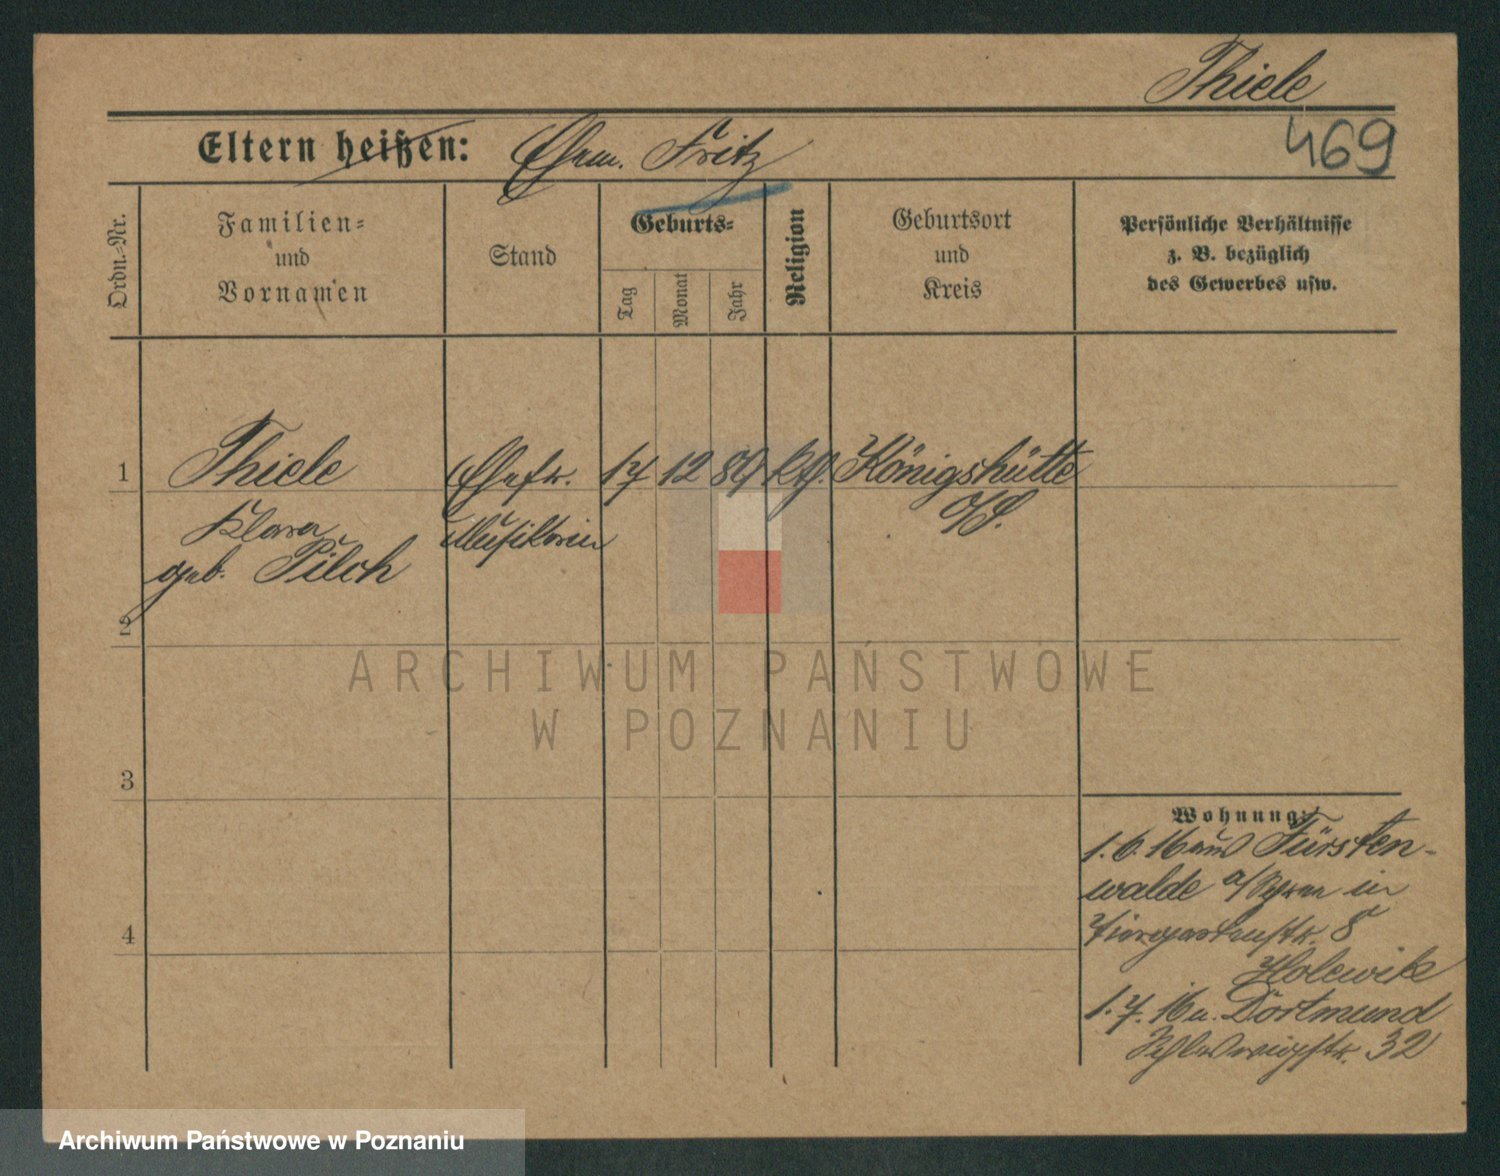 Thiele
469
Eltern heißen: Ehem. Fritz
Ordn.-Nr.
Familien-
und
Vornamen
Stand
Geburts-
Tag
Monat
Jahr
Religion
Geburtsort
und
Kreis
Persönliche Verhältnisse
z. B. bezüglich
des Gewerbes usw.
1 Thiele Ehefr. 17 12 89 kth. Königshütte
O/S.
Klara Musikerin
geb. Pilch
2
3
4
Wohnung:
1.6.16 aus Fürsten-
walde a/Spree in
Tiergartenstr. 8
Holewik
1.7.16 n. Dortmund
32
ARCHIWUM PAŃSTWOWE
W POZNANIU
Archiwum Państwowe w Poznaniu